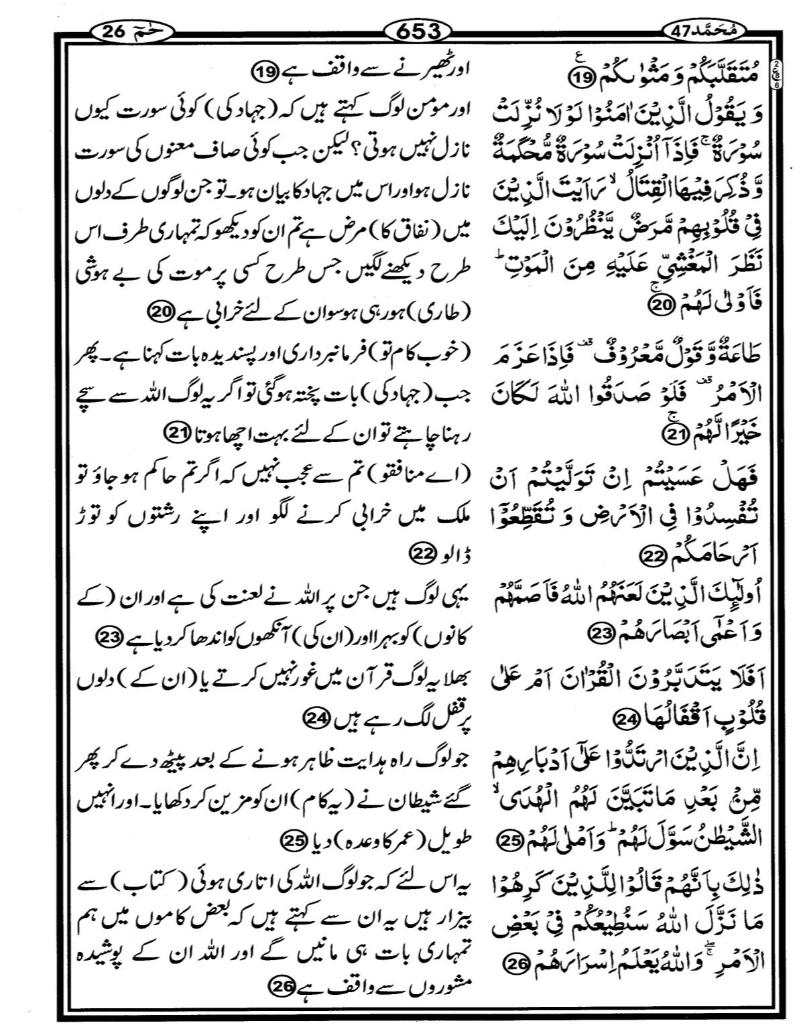 مُحَمَّد47
653
حٰمٓ 26
مُتَقَلَّبَكُمْ وَ مَثْوٰىكُمْ ۧ 19
وَ يَقُوْلُ الَّذِيْنَ اٰمَنُوْا لَوْ لَا نُزِّلَتْ
سُوْرَةٌ ۚ فَاِذَاۤ اُنْزِلَتْ سُوْرَةٌ مُّحْكَمَةٌ
وَّ ذُكِرَ فِيْهَا الْقِتَالُ ۙ رَاَيْتَ الَّذِيْنَ
فِيْ قُلُوْبِهِمْ مَّرَضٌ يَّنْظُرُوْنَ اِلَيْكَ
نَظَرَ الْمَغْشِيِّ عَلَيْهِ مِنَ الْمَوْتِ ؕ
فَاَوْلٰى لَهُمْ ۚ 20
طَاعَةٌ وَّ قَوْلٌ مَّعْرُوْفٌ ۫ فَاِذَا عَزَمَ
الْاَمْرُ ۫ فَلَوْ صَدَقُوا اللّٰهَ لَكَانَ
خَيْرًا لَّهُمْ ۚ 21
فَهَلْ عَسَيْتُمْ اِنْ تَوَلَّيْتُمْ اَنْ
تُفْسِدُوْا فِي الْاَرْضِ وَ تُقَطِّعُوْۤا
اَرْحَامَكُمْ 22
اُولٰٓئِكَ الَّذِيْنَ لَعَنَهُمُ اللّٰهُ فَاَصَمَّهُمْ
وَ اَعْمٰۤى اَبْصَارَهُمْ 23
اَفَلَا يَتَدَبَّرُوْنَ الْقُرْاٰنَ اَمْ عَلٰى
قُلُوْبٍ اَقْفَالُهَا 24
اِنَّ الَّذِيْنَ ارْتَدُّوْا عَلٰۤى اَدْبَارِهِمْ
مِّنْۢ بَعْدِ مَا تَبَيَّنَ لَهُمُ الْهُدَى ۙ
الشَّيْطٰنُ سَوَّلَ لَهُمْ ؕ وَ اَمْلٰى لَهُمْ 25
ذٰلِكَ بِاَنَّهُمْ قَالُوْا لِلَّذِيْنَ كَرِهُوْا
مَا نَزَّلَ اللّٰهُ سَنُطِيْعُكُمْ فِيْ بَعْضِ
الْاَمْرِ ۖۚ وَ اللّٰهُ يَعْلَمُ اِسْرَارَهُمْ 26
اور ٹھیرنے سے واقف ہے 19
اور مؤمن لوگ کہتے ہیں کہ (جہاد کی) کوئی سورت کیوں
نازل نہیں ہوتی؟ لیکن جب کوئی صاف معنوں کی سورت
نازل ہو اور اس میں جہاد کا بیان ہو۔ تو جن لوگوں کے دلوں
میں (نفاق کا) مرض ہے تم ان کو دیکھو کہ تمہاری طرف اس
طرح دیکھنے لگیں جس طرح کسی پر موت کی بے ہوشی
(طاری) ہو رہی ہو سو ان کے لئے خرابی ہے 20
(خوب کام تو) فرمانبرداری اور پسندیدہ بات کہنا ہے۔ پھر
جب (جہاد کی) بات پختہ ہوگئی تو اگر یہ لوگ اللہ سے سچے
رہنا چاہتے تو ان کے لئے بہت اچھا ہوتا 21
(اے منافقو) تم سے عجب نہیں کہ اگر تم حاکم ہو جاؤ تو
ملک میں خرابی کرنے لگو اور اپنے رشتوں کو توڑ
ڈالو 22
یہی لوگ ہیں جن پر اللہ نے لعنت کی ہے اور ان (کے
کانوں) کو بہرا اور (ان کی) آنکھوں کو اندھا کر دیا ہے 23
بھلا یہ لوگ قرآن میں غور نہیں کرتے یا (ان کے) دلوں
پر قفل لگ رہے ہیں 24
جو لوگ راہ ہدایت ظاہر ہونے کے بعد پیٹھ دے کر پھر
گئے شیطان نے (یہ کام) ان کو مزین کر دکھایا۔ اور انہیں
طویل (عمر کا وعدہ) دیا 25
یہ اس لئے کہ جو لوگ اللہ کی اتاری ہوئی (کتاب) سے
بیزار ہیں یہ ان سے کہتے ہیں کہ بعض کاموں میں ہم
تمہاری بات ہی مانیں گے اور اللہ ان کے پوشیدہ
مشوروں سے واقف ہے 26